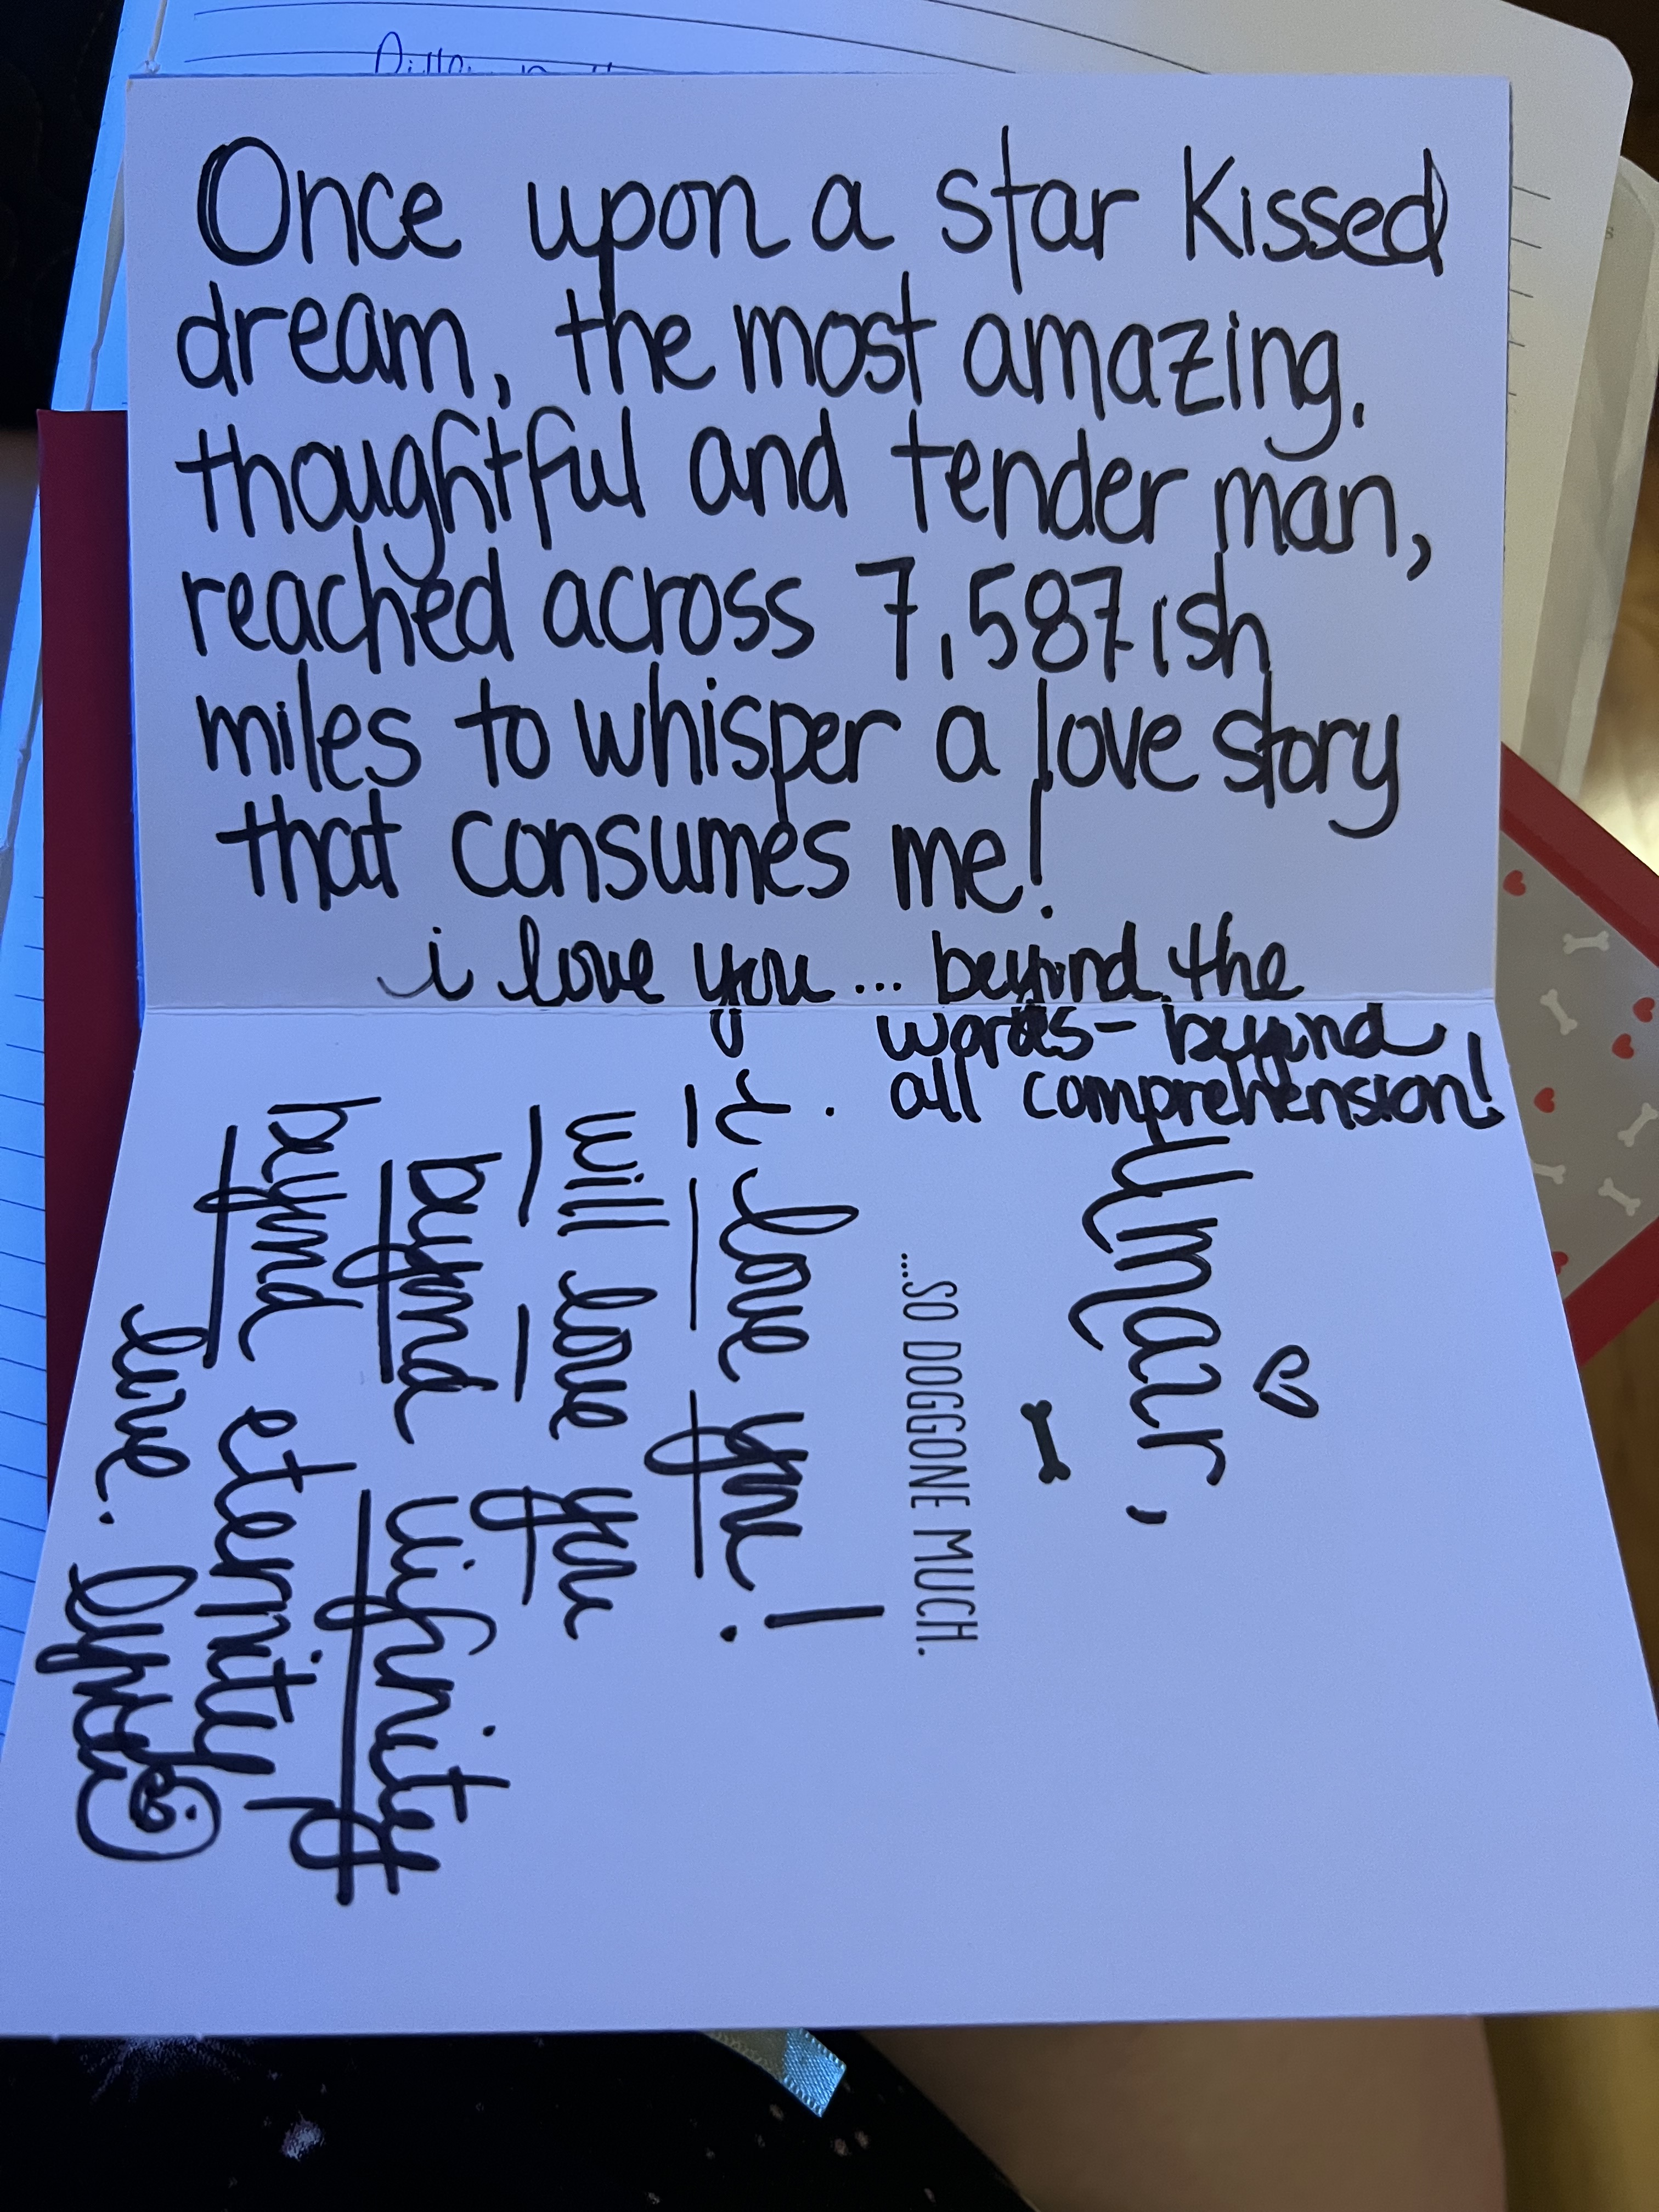 Once upon a star kissed
dream, the most amazing,
thoughtful and tender man,
reached across 7,587ish
miles to whisper a love story
that consumes me!
i love you... beyond the
words - beyond
all comprehension!
Umair,
...SO DOGGONE MUCH.
i love you!
will love you
beyond infinity
beyond eternity
love.